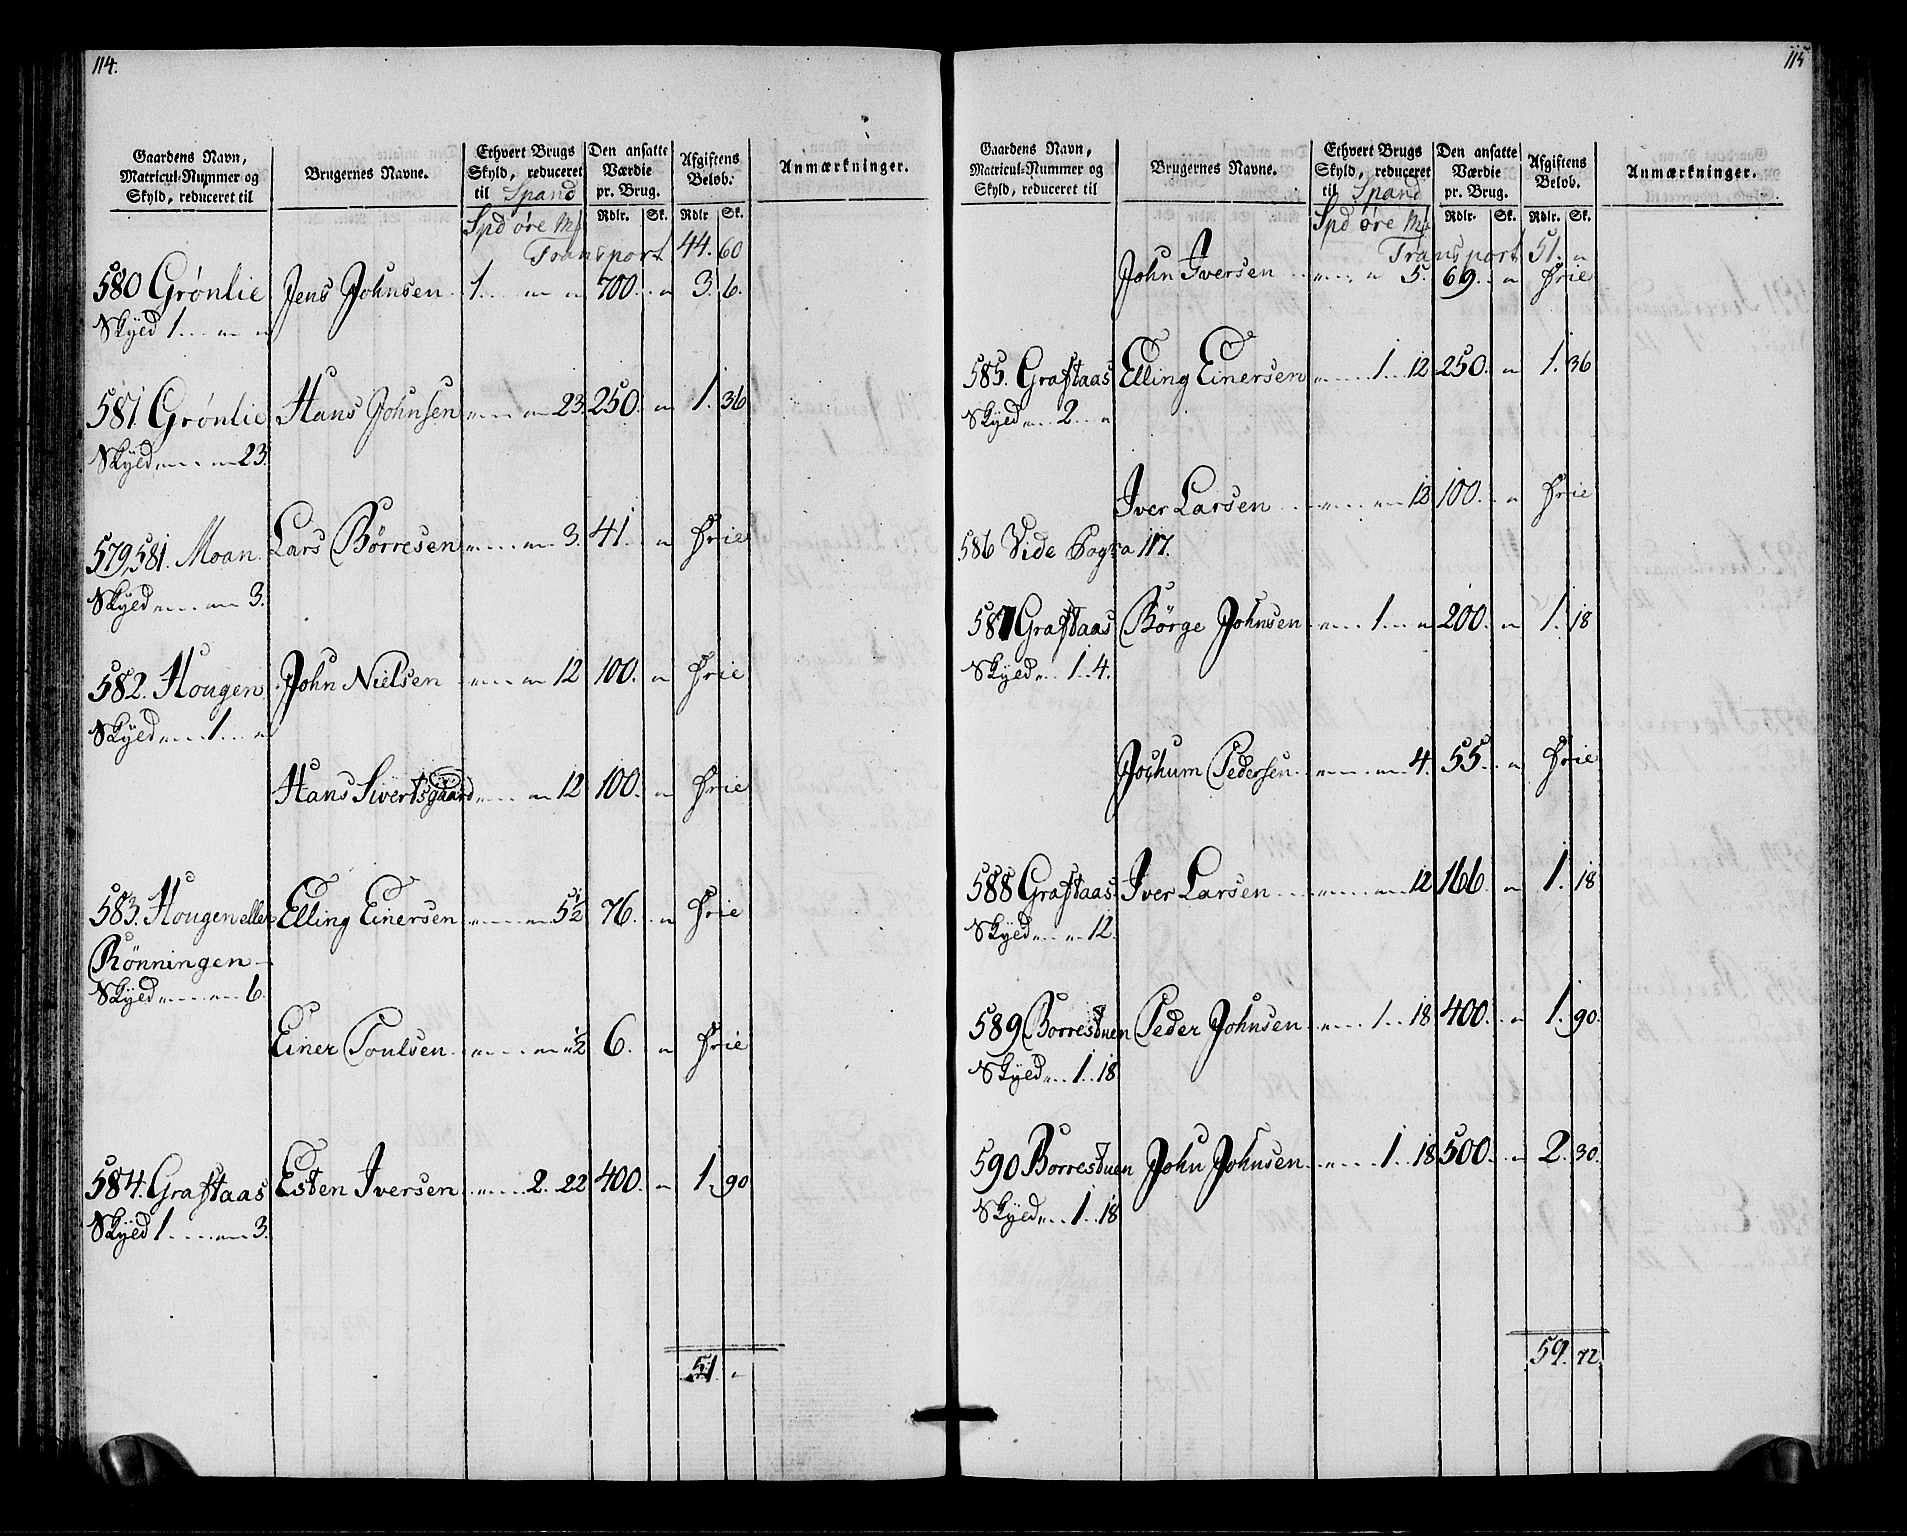 114.
Gaardens Navn, Matricul-Nummer og Skyld, reduceret til
Brugernes Navne.
Ethvert Brugs Skyld, reduceret til Spand
Den ansatte Værdie pr. Brug.
Afgiftens Beløb.
Anmærkninger.
Rdlr. Sk. Rdlr Sk.
Spd øre Mf
Transport 44. 60
580 Grønlie Jens Johnsen 1. „ „ 700. „ 3. 6.
Skyld 1 „ „
581. Grønlie Hans Johnsen „ „ 23. 250. „ 1. 36
Skyld „ „ 23.
579, 581. Moan Lars Børresen „ „ 3. 41. „ frie
Skyld „ „ 3.
582. Hougen John Nielsen „ „ 12 100. „ frie
Skyld „ 1 „
Hans Sivertsgaard „ „ 12 100. „ frie
583. Hougen eller Elling Einersen „ „ 5½ 76. „ frie
Rönningen
Skyld „ „ 6.
Einer Poulsen „ „ ½ 6. „ frie
584. Graftaas Esten Iversen „ 2. 22 400. „ 1. 90
Skyld 1 „ 3.
51. „
115
Gaardens Navn, Matricul-Nummer og Skyld, reduceret til
Brugernes Navne.
Ethvert Brugs Skyld, reduceret til Spand
Den ansatte Værdie pr. Brug.
Afgiftens Beløb.
Anmærkninger.
Rdlr. Sk. Rdlr. Sk.
Spd øre Mf
Transport 51. „
John Iversen „ „ 5. 69. „ frie
585. Graftaas Elling Einersen „ 1 12 250. „ 1. 36
Skyld „ 2 „
Iver Larsen „ „ 12 100. „ frie
586 Vide Pagina 117.
587 Graftaas Börge Johnsen „ 1 „ 200. „ 1. 18
Skyld „ 1. 4.
Jochum Pedersen „ „ 4. 55. „ frie
588 Graftaas Iver Larsen „ „ 12 166. „ 1. 18
Skyld „ „ 12.
589 Borresduen Peder Johnsen „ 1. 18 400. „ 1. 90.
Skyld „ 1. 18
590 Borresduen John Johnsen „ 1. 18 500. „ 2. 30.
Skyld „ 1. 18
59. 72.